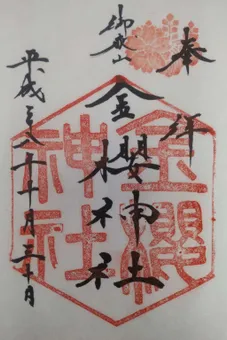 奉拝
御岳山
金櫻神社
平成二八年十月三十日
金櫻
神社